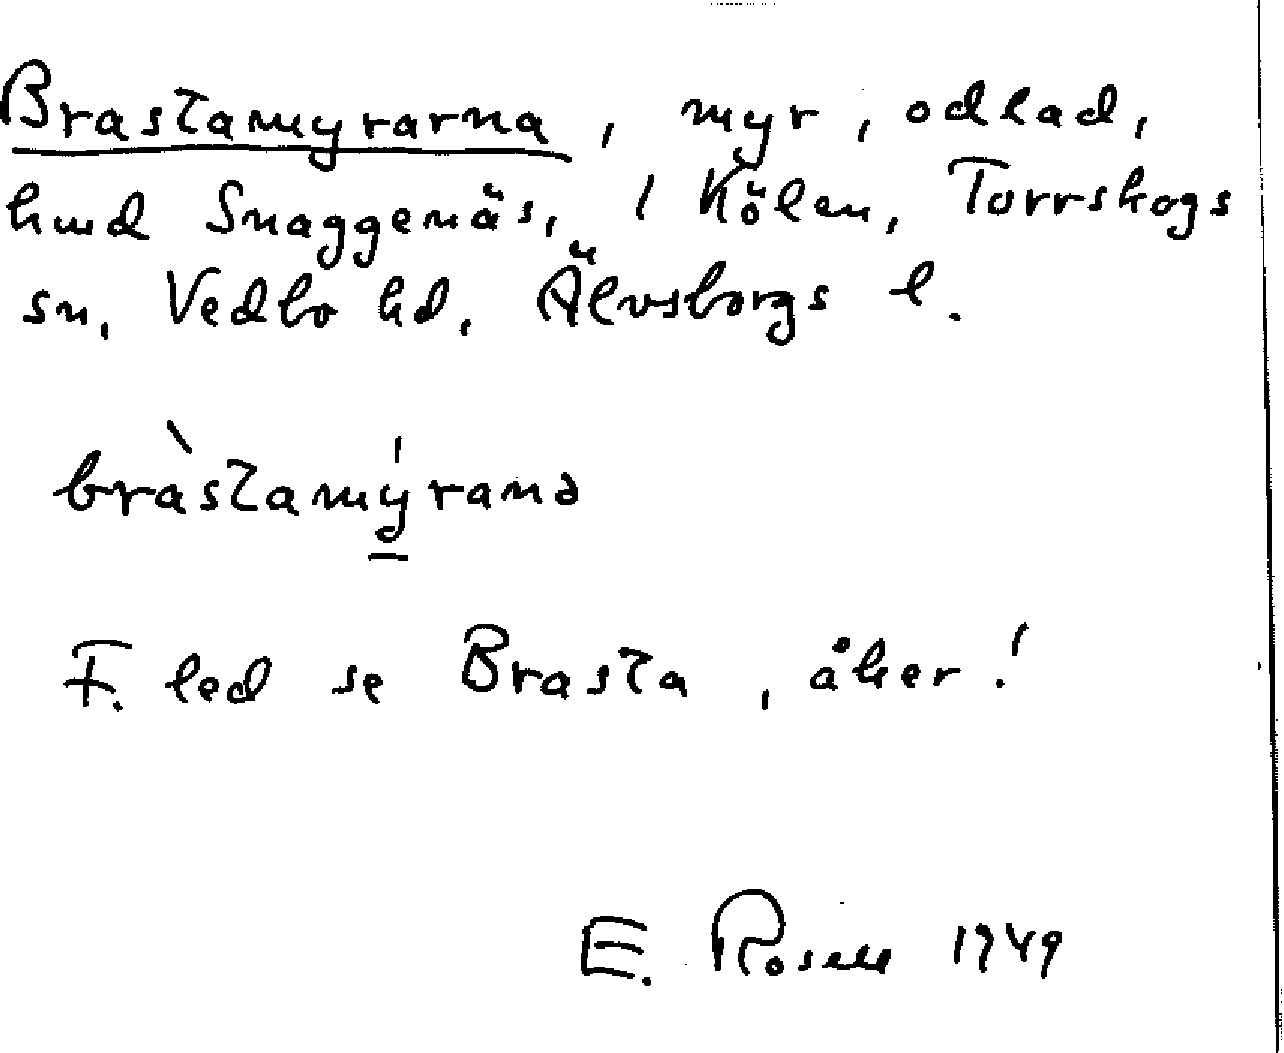 Brastamyrarna, myr, odlad,
hmd Snaggenäs, 1 Kölen, Torrskogs
sn, Vedbo hd, Älvsborgs l.
bràstamýranə
F. led se Brasta, åker!
E. Rosell 1949